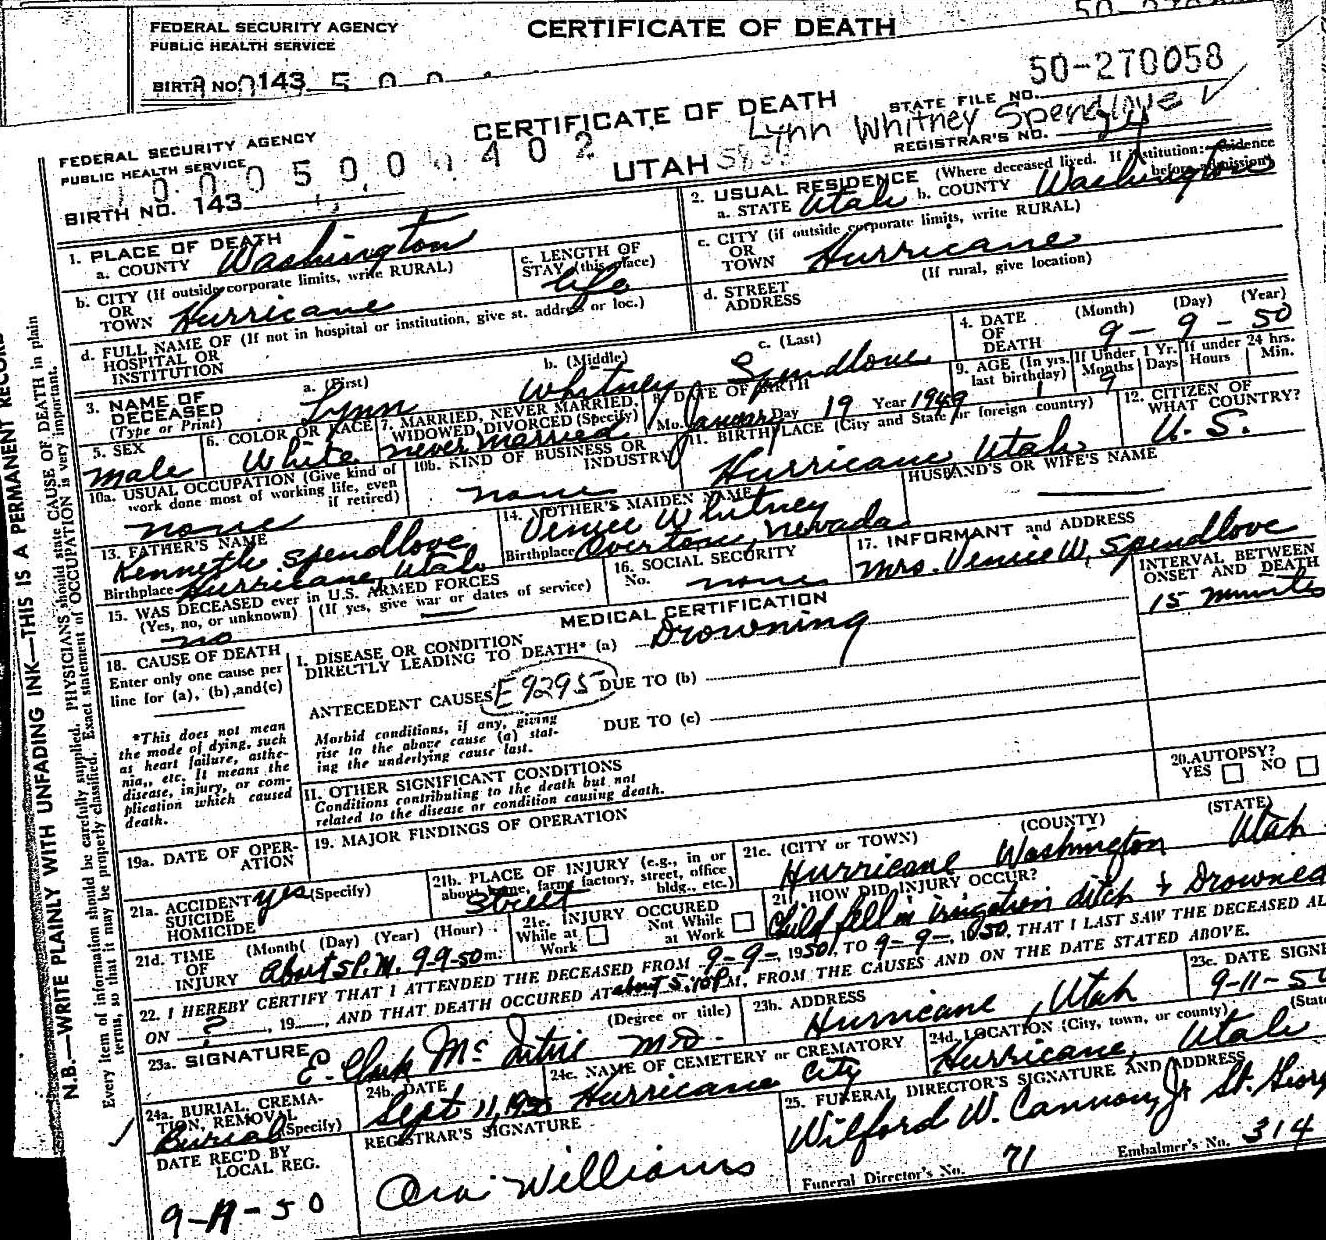 FEDERAL SECURITY AGENCY
PUBLIC HEALTH SERVICE
CERTIFICATE OF DEATH
BIRTH NO. 143
50-270058
FEDERAL SECURITY AGENCY
PUBLIC HEALTH SERVICE
CERTIFICATE OF DEATH
UTAH
STATE FILE NO.
Lynn Whitney Spendlove
REGISTRAR'S NO. 4
BIRTH NO. 143
1. PLACE OF DEATH
a. COUNTY Washington
b. CITY (If outside corporate limits, write RURAL)
OR
TOWN Hurricane
c. LENGTH OF
STAY (this place)
life
d. FULL NAME OF (If not in hospital or institution, give st. address or loc.)
HOSPITAL OR
INSTITUTION
2. USUAL RESIDENCE (Where deceased lived. If institution: residence
before admission)
a. STATE Utah b. COUNTY Washington
c. CITY (if outside corporate limits, write RURAL)
OR
TOWN Hurricane
d. STREET (If rural, give location)
ADDRESS
3. NAME OF
DECEASED
(Type or Print)
a. (First) b. (Middle) c. (Last)
Lynn Whitney Spendlove
4. DATE
OF
DEATH
(Month) (Day) (Year)
9 - 9 - 50
5. SEX
male
6. COLOR OR RACE
White
7. MARRIED, NEVER MARRIED,
WIDOWED, DIVORCED (Specify)
never married
8. DATE OF BIRTH
Mo. January Day 19 Year 1949
9. AGE (In yrs.
last birthday)
1
If Under 1 Yr.
Months Days
If under 24 hrs.
Hours Min.
10a. USUAL OCCUPATION (Give kind of
work done most of working life, even
if retired)
none
10b. KIND OF BUSINESS OR
INDUSTRY
none
11. BIRTHPLACE (City and State or foreign country)
Hurricane Utah
12. CITIZEN OF
WHAT COUNTRY?
U. S.
13. FATHER'S NAME
Kenneth Spendlove
Birthplace Hurricane, Utah
14. MOTHER'S MAIDEN NAME
Venice Whitney
Birthplace Overton, Nevada
HUSBAND'S OR WIFE'S NAME
15. WAS DECEASED ever in U.S. ARMED FORCES
(Yes, no, or unknown) (If yes, give war or dates of service)
no
16. SOCIAL SECURITY
No. none
17. INFORMANT and ADDRESS
Mrs. Venice W. Spendlove
MEDICAL CERTIFICATION
INTERVAL BETWEEN
ONSET AND DEATH
15 minutes
18. CAUSE OF DEATH
Enter only one cause per
line for (a), (b), and (c)
*This does not mean
the mode of dying, such
as heart failure, asthe-
nia, etc. It means the
disease, injury, or com-
plication which caused
death.
I. DISEASE OR CONDITION
DIRECTLY LEADING TO DEATH* (a) Drowning
ANTECEDENT CAUSES E9295 DUE TO (b)
Morbid conditions, if any, giving
rise to the above cause (a) stat-
ing the underlying cause last.
DUE TO (c)
II. OTHER SIGNIFICANT CONDITIONS
Conditions contributing to the death but not
related to the disease or condition causing death.
19a. DATE OF OPER-
ATION
19. MAJOR FINDINGS OF OPERATION
20. AUTOPSY?
YES NO
21a. ACCIDENT yes (Specify)
SUICIDE
HOMICIDE
21b. PLACE OF INJURY (e.g., in or
about home, farm, factory, street, office
bldg., etc.)
street
21c. (CITY or TOWN) (COUNTY) (STATE)
Hurricane Washington Utah
21d. TIME (Month) (Day) (Year) (Hour)
OF
INJURY About 5 P.M. 9-9-50 m.
21e. INJURY OCCURED
While at
Work
Not While
at Work
21f. HOW DID INJURY OCCUR?
Child fell in irrigation ditch & Drowned
22. I HEREBY CERTIFY THAT I ATTENDED THE DECEASED FROM 9-9-, 1950, TO 9-9-, 1950, THAT I LAST SAW THE DECEASED AL
ON ?, 19, AND THAT DEATH OCCURED AT about 5:10 P M. FROM THE CAUSES AND ON THE DATE STATED ABOVE.
23a. SIGNATURE (Degree or title)
E. Clark McIntire M.D.
23b. ADDRESS
Hurricane, Utah
23c. DATE SIGNE
9-11-50
24a. BURIAL, CREMA-
TION, REMOVAL
(Specify)
Burial
24b. DATE
Sept 11, 1950
24c. NAME OF CEMETERY or CREMATORY
Hurricane City
24d. LOCATION (City, town, or county) (State
Hurricane, Utah
DATE REC'D BY
LOCAL REG.
9-11-50
REGISTRAR'S SIGNATURE
Ora Williams
25. FUNERAL DIRECTOR'S SIGNATURE AND ADDRESS
Wilford W. Cannon, Jr St. Georg
Funeral Director's No. 71 Embalmer's No. 314
N.B.—WRITE PLAINLY WITH UNFADING INK—THIS IS A PERMANENT RECORD
Every item of information should be carefully supplied. PHYSICIANS should state CAUSE OF DEATH in plain
terms, so that it may be properly classified. Exact statement of OCCUPATION is very important.